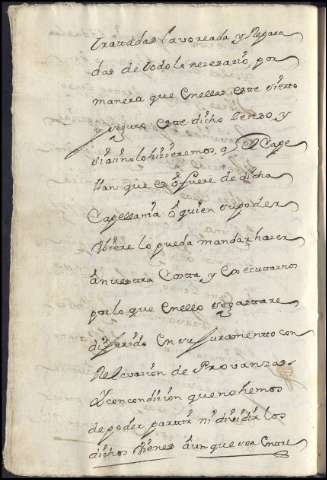 tratadas labreada y Repara
das de todo lo necesario, por
manera que enellas este sierto
y seguro este dicho senso, y
si asi no lo hisieremos, q El Cape
llan que es o fuere de dicha
Capellania o quien su poder
Ubiere lo pueda mandar haser
a nuestra Costa y Executarnos
por lo que en ello se gastare
diferido En su Juramento con
Relevasion de Provanza
Y con condision que no hemos
de poder partir ni dividir los
dichos bienes aunque sea entre